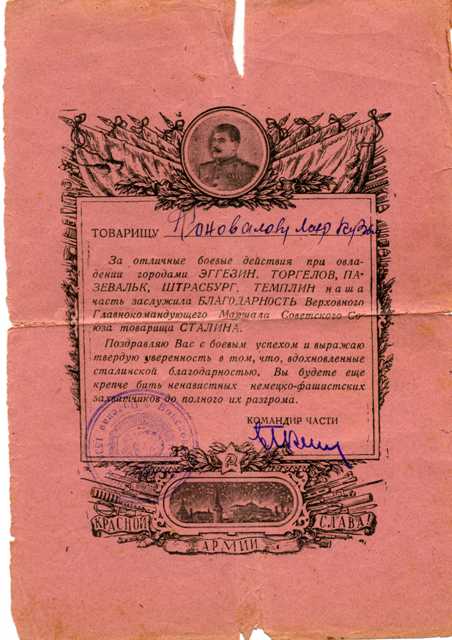 ТОВАРИЩУ Коновалову
За отличные боевые действия при овла-
дении городами ЭГГЕЗИН, ТОРГЕЛОВ, ПА-
ЗЕВАЛЬК, ШТРАСБУРГ, ТЕМПЛИН наша
часть заслужила БЛАГОДАРНОСТЬ Верховного
Главнокомандующего Маршала Советского Со-
юза товарища СТАЛИНА.
Поздравляю Вас с боевым успехом и выражаю
твердую уверенность в том, что, вдохновленные
сталинской благодарностью, Вы будете еще
крепче бить ненавистных немецко-фашистских
захватчиков до полного их разгрома.
КОМАНДИР ЧАСТИ
КРАСНОЙ
АРМИИ
СЛАВА!